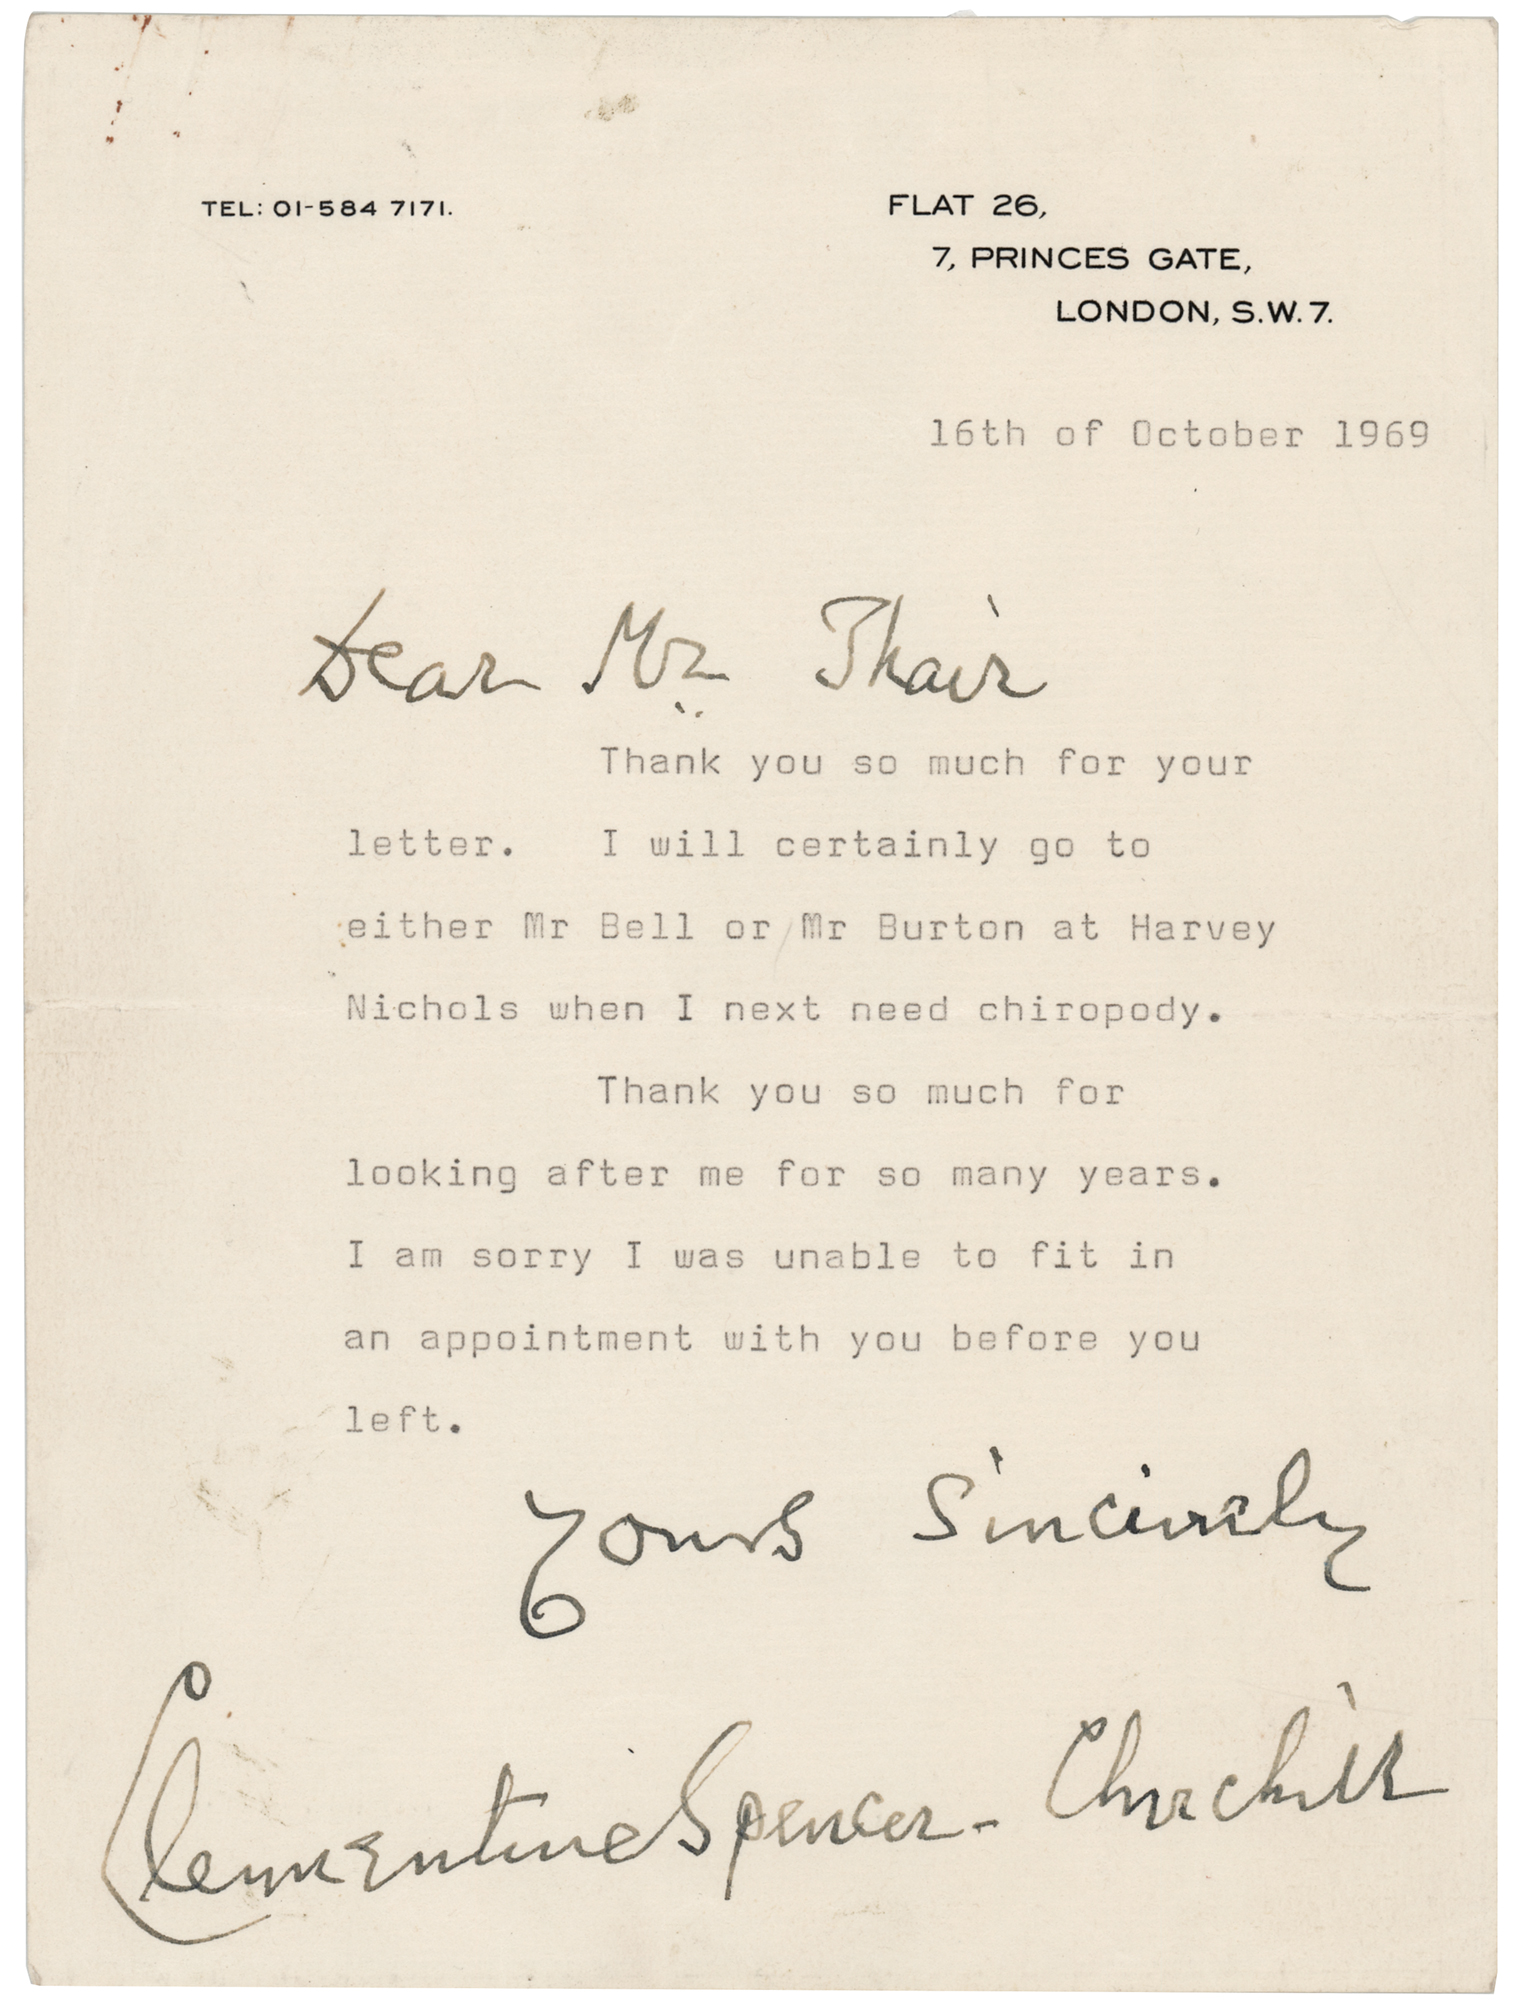 TEL: 01-584 7171.
FLAT 26,
7, PRINCES GATE,
LONDON, S.W.7.
16th of October 1969
Dear Mr Thair
Thank you so much for your
letter. I will certainly go to
either Mr Bell or Mr Burton at Harvey
Nichols when I next need chiropody.
Thank you so much for
looking after me for so many years.
I am sorry I was unable to fit in
an appointment with you before you
left.
Yours Sincerely
Clementine Spencer-Churchill